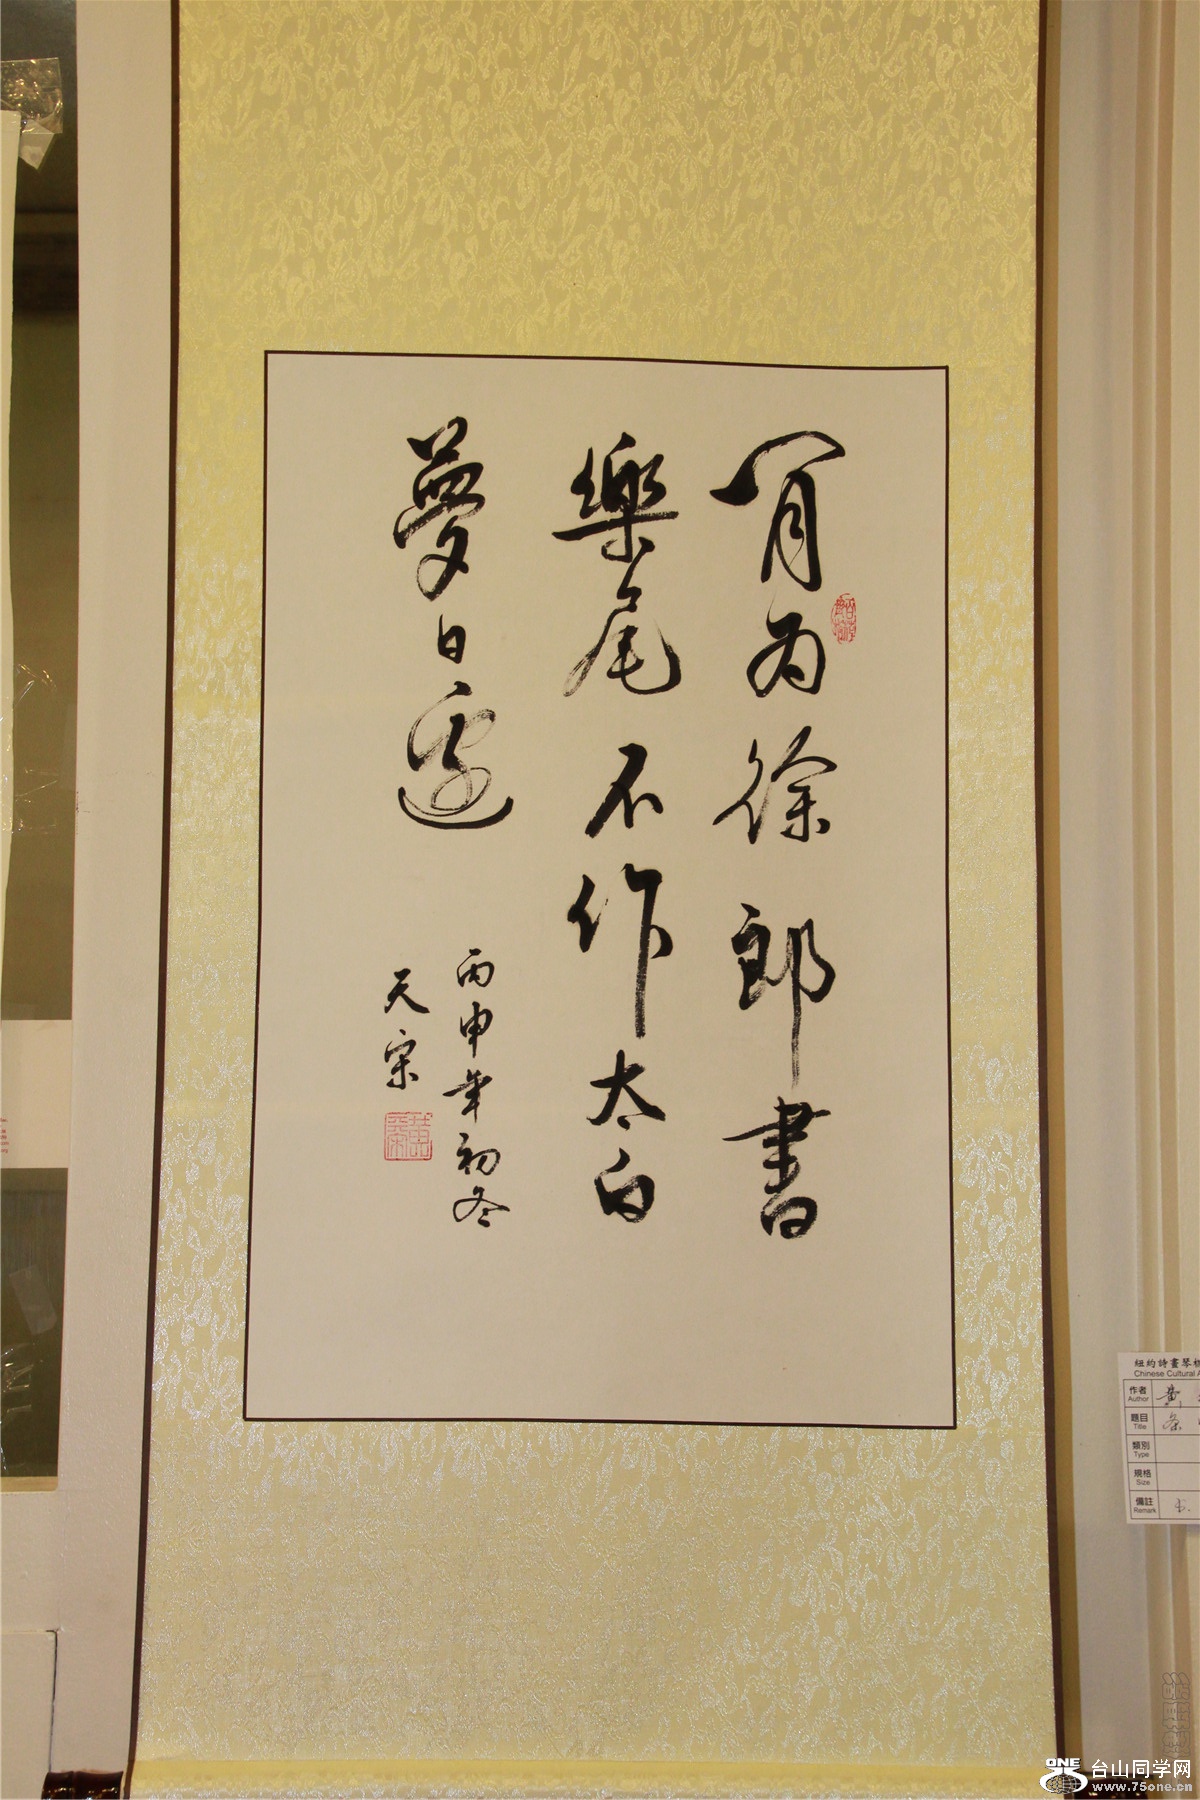 閒為徐郎書
樂尾不作太白
夢日邊
丙申年初冬
天宗
紐約詩畫琴棋
Chinese Cultural A
作者
Author
黄
題目
Title
條
類別
Type
規格
Size
備註
Remark
ONE
台山同学网
www.75one.cn